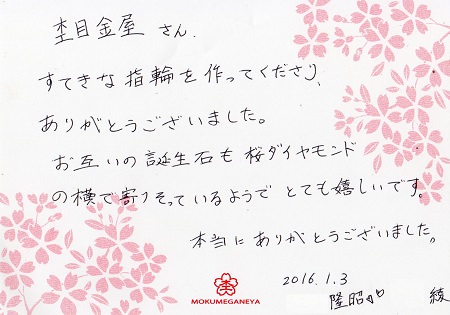 杢目金屋 さん.
すてきな指輪を作ってくださり、
ありがとうございました。
お互いの誕生石も桜ダイヤモンド
の横で寄りそっているようでとても嬉しいです。
本当にありがとうございました。
2016.1.3
隆昭 綾
MOKUMEGANEYA